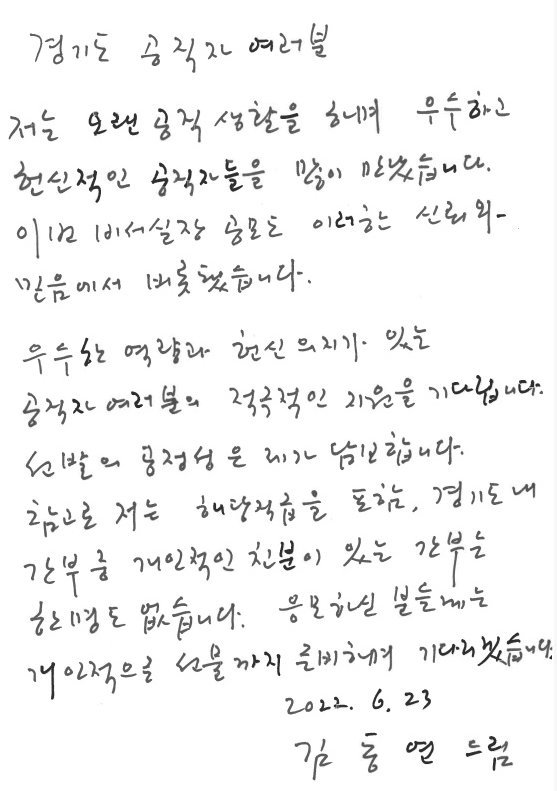 경기도 공직자 여러분
저는 오랜 공직 생활을 하며 우수하고
헌신적인 공직자들을 많이 만났습니다.
이번 비서실장 공모도 이러한 신뢰와
믿음에서 비롯됐습니다.
우수한 역량과 헌신 의지가 있는
공직자 여러분의 적극적인 지원을 기다립니다.
선발의 공정성은 제가 담보합니다.
참고로 저는 해당직급을 포함, 경기도 내
간부 중 개인적인 친분이 있는 간부는
한 명도 없습니다. 응모하신 분들께는
개인적으로 선물까지 준비하며 기다리겠습니다.
2022. 6. 23
김동연 드림